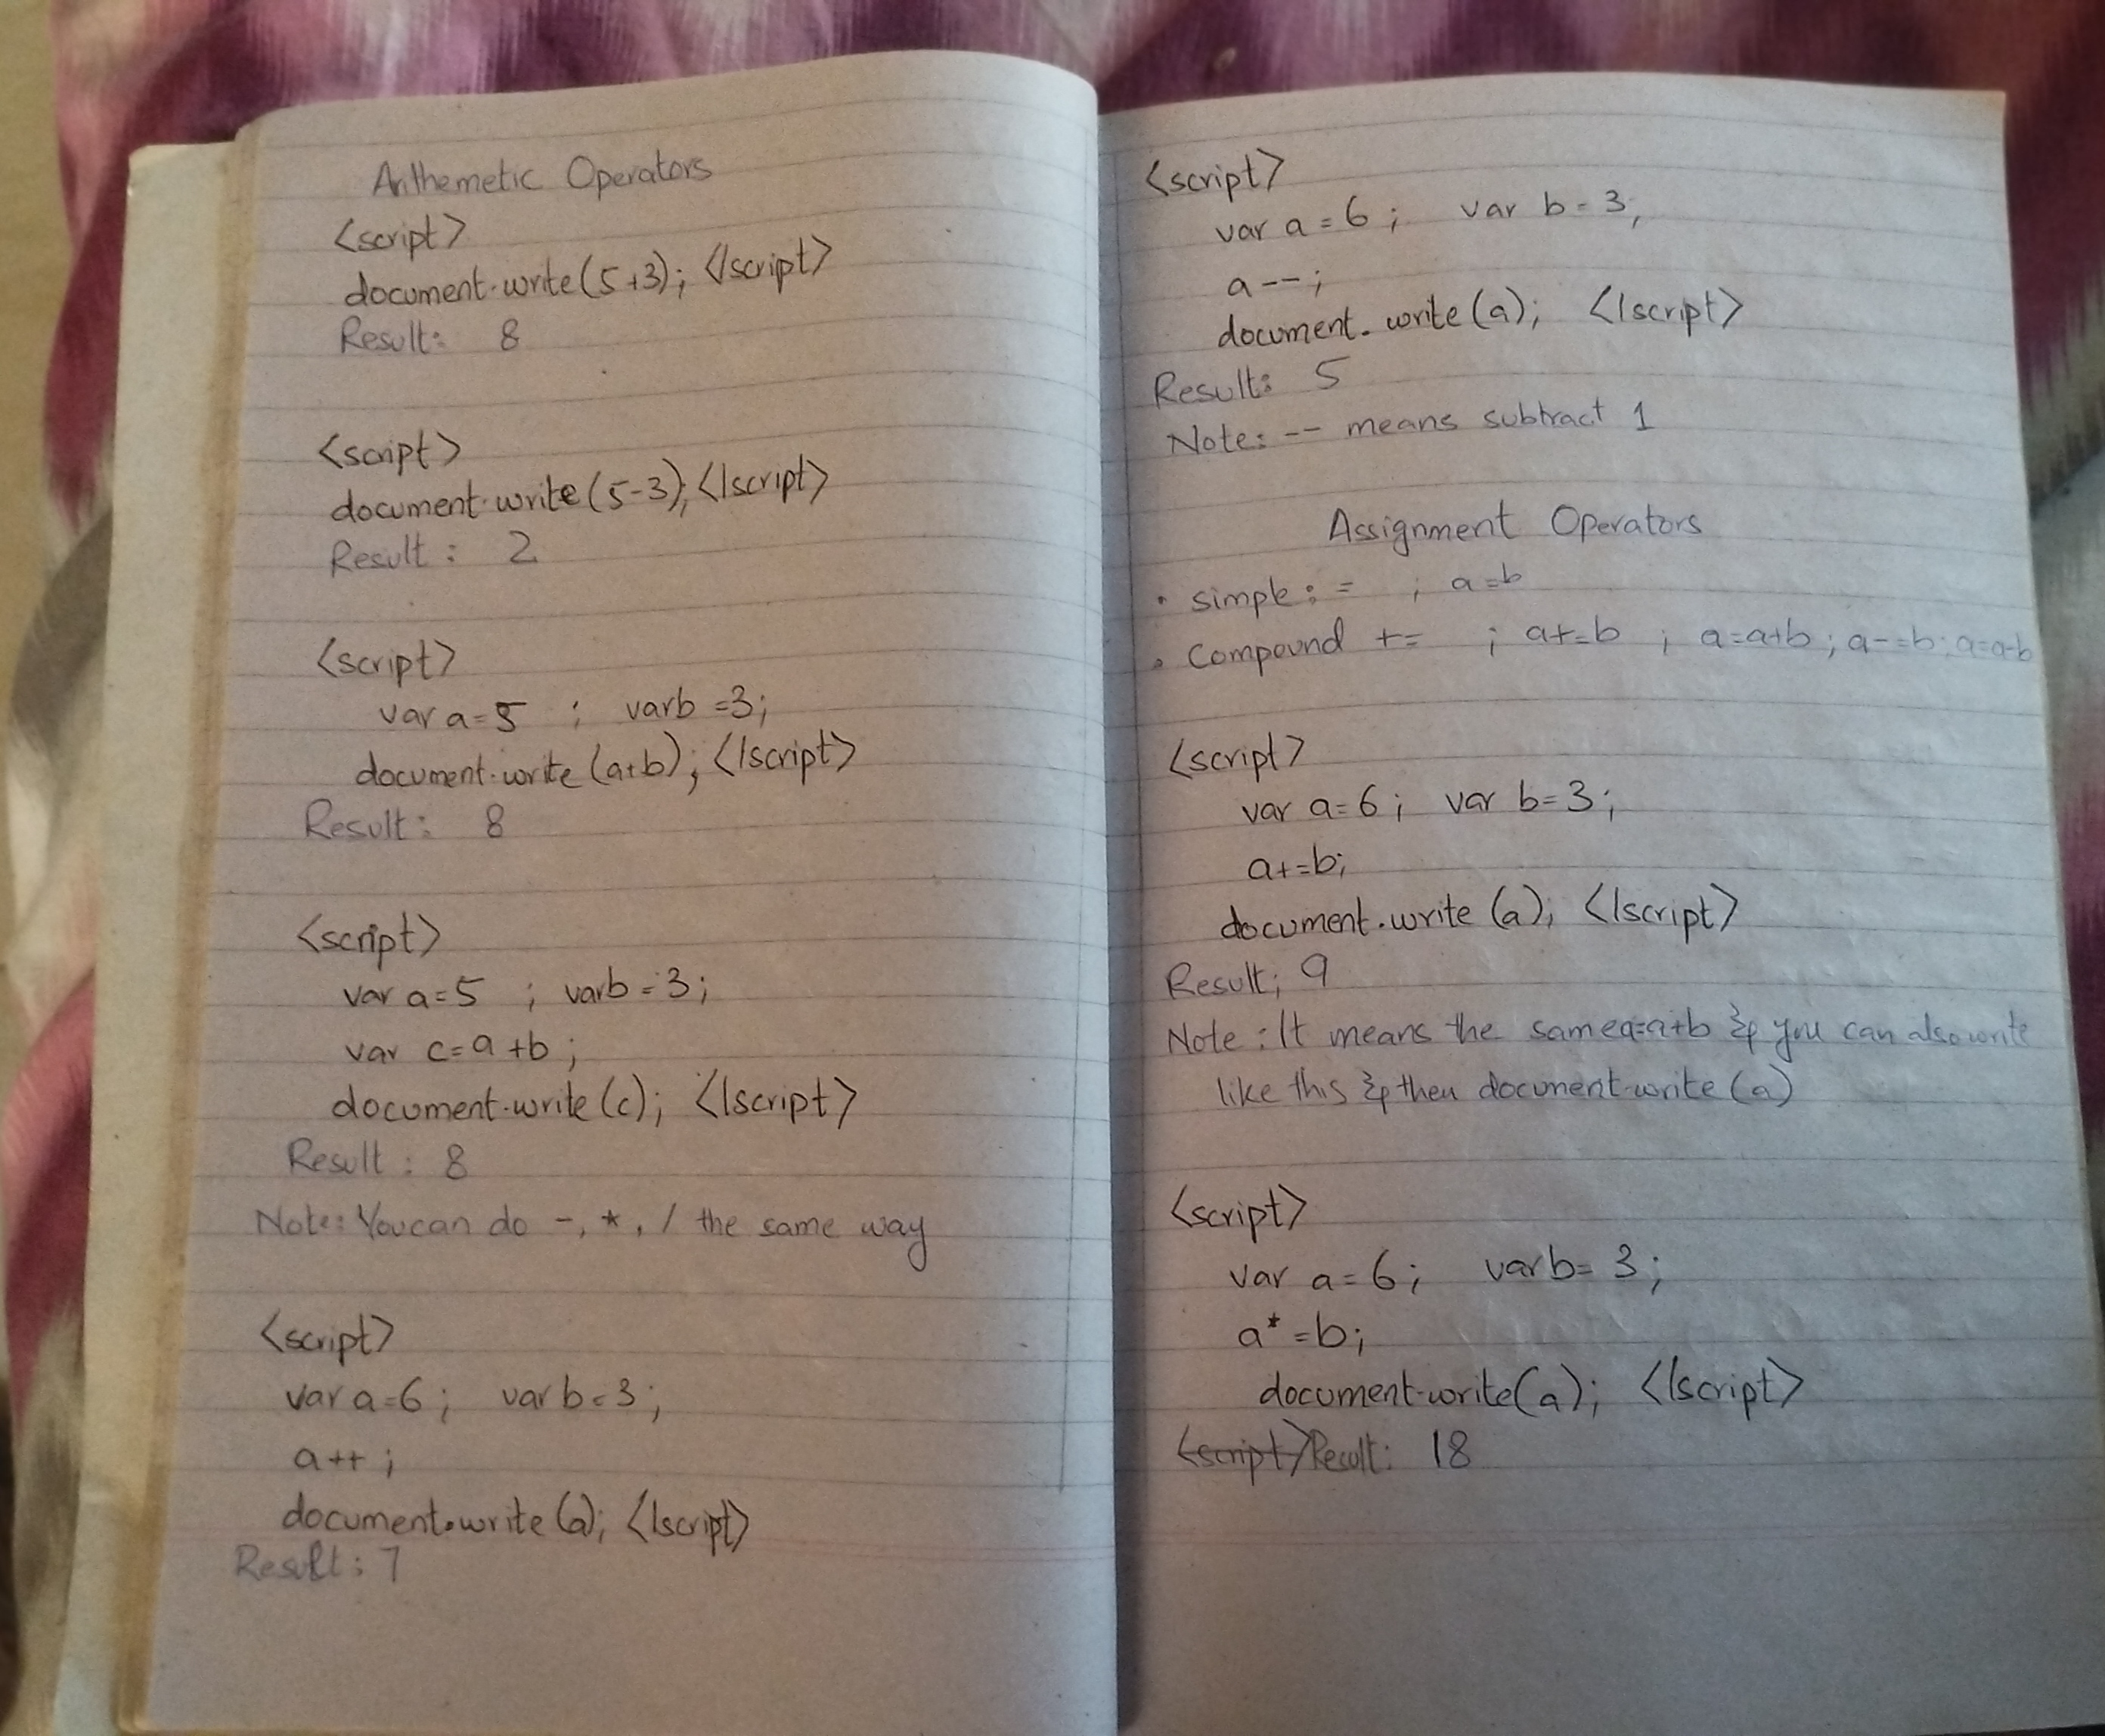 Arithemetic Operators
<script>
document.write(5+3); </script>
Result: 8
<script>
document.write(5-3); </script>
Result: 2
<script>
var a=5 ; var b=3;
document.write(a+b); </script>
Result: 8
<script>
var a=5 ; var b=3;
var c=a+b ;
document.write(c); </script>
Result : 8
Note: You can do -, *, / the same way
<script>
var a=6 ; var b=3 ;
a++ ;
document.write(a); </script>
Result : 7
<script>
var a=6 ; var b=3;
a-- ;
document.write(a); </script>
Result: 5
Note: -- means subtract 1
Assignment Operators
• simple : = ; a=b
• Compound += ; a+=b ; a=a+b ; a-=b; a=a-b
<script>
var a=6 ; var b=3 ;
a+=b;
document.write(a); </script>
Result; 9
Note : It means the same a=a+b & you can also write
like this & then document.write(a)
<script>
var a=6 ; var b= 3 ;
a*=b;
document.write(a); </script>
<script> Result: 18